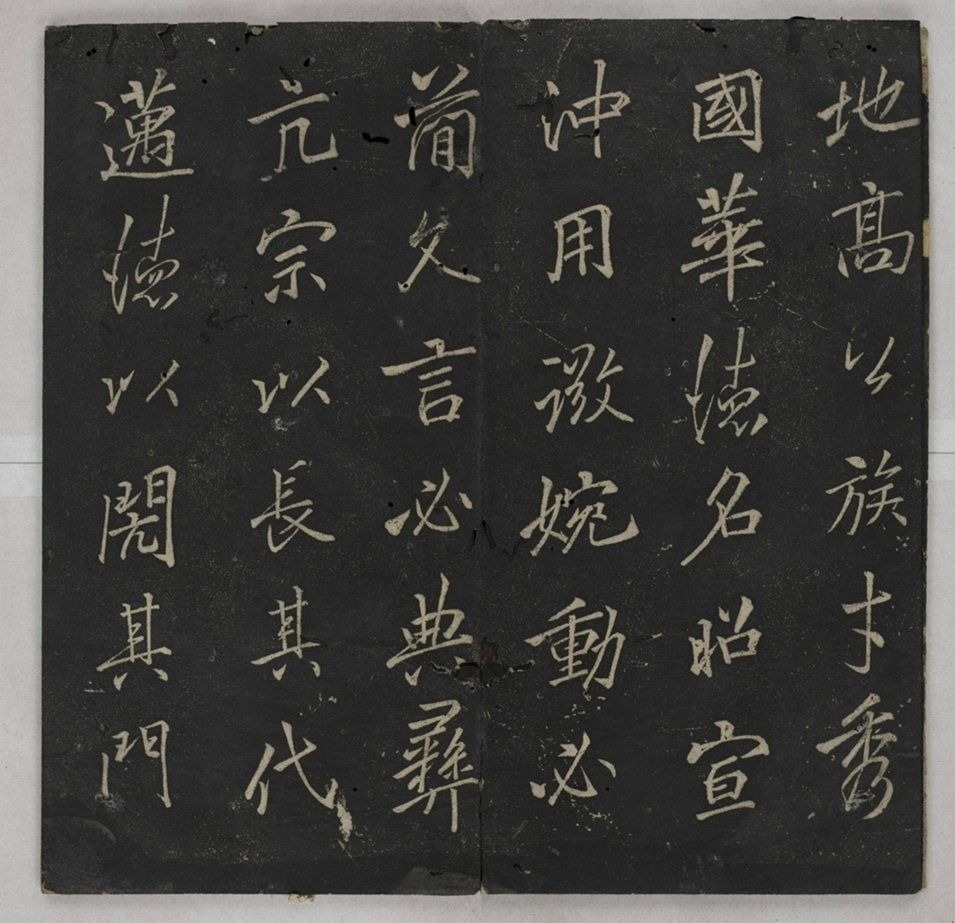 地高公族才秀
國華德名昭宣
沖用微婉動必
簡久言必典彝
亢宗以長其代
邁德以閌其門